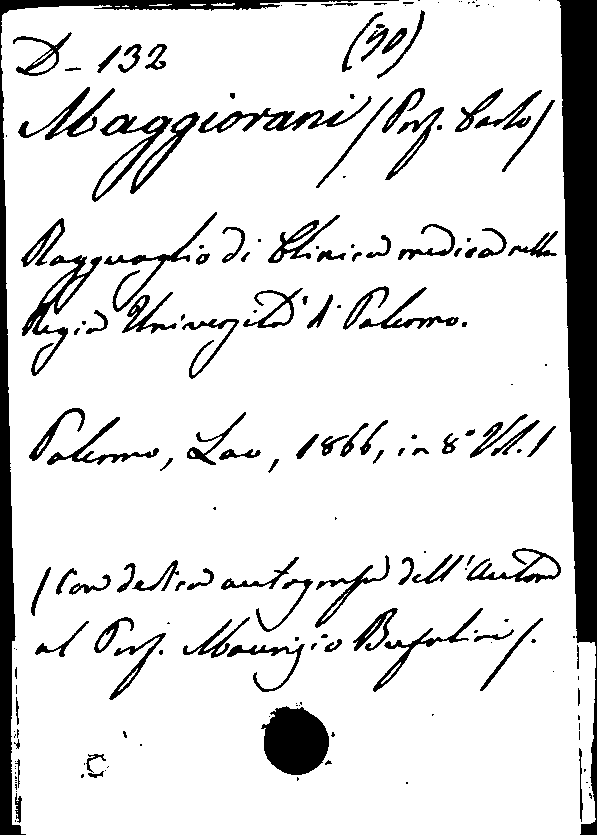 D- 132 (90)
Maggiorani (Prof. Carlo)
Ragguaglio di Clinica medica nella
Regia Università di Palermo.
Palermo, Lao, 1866, in 8° Vol. 1
(Con dedica autografa dell'Autore
al Prof. Maurizio Bufalini).
C